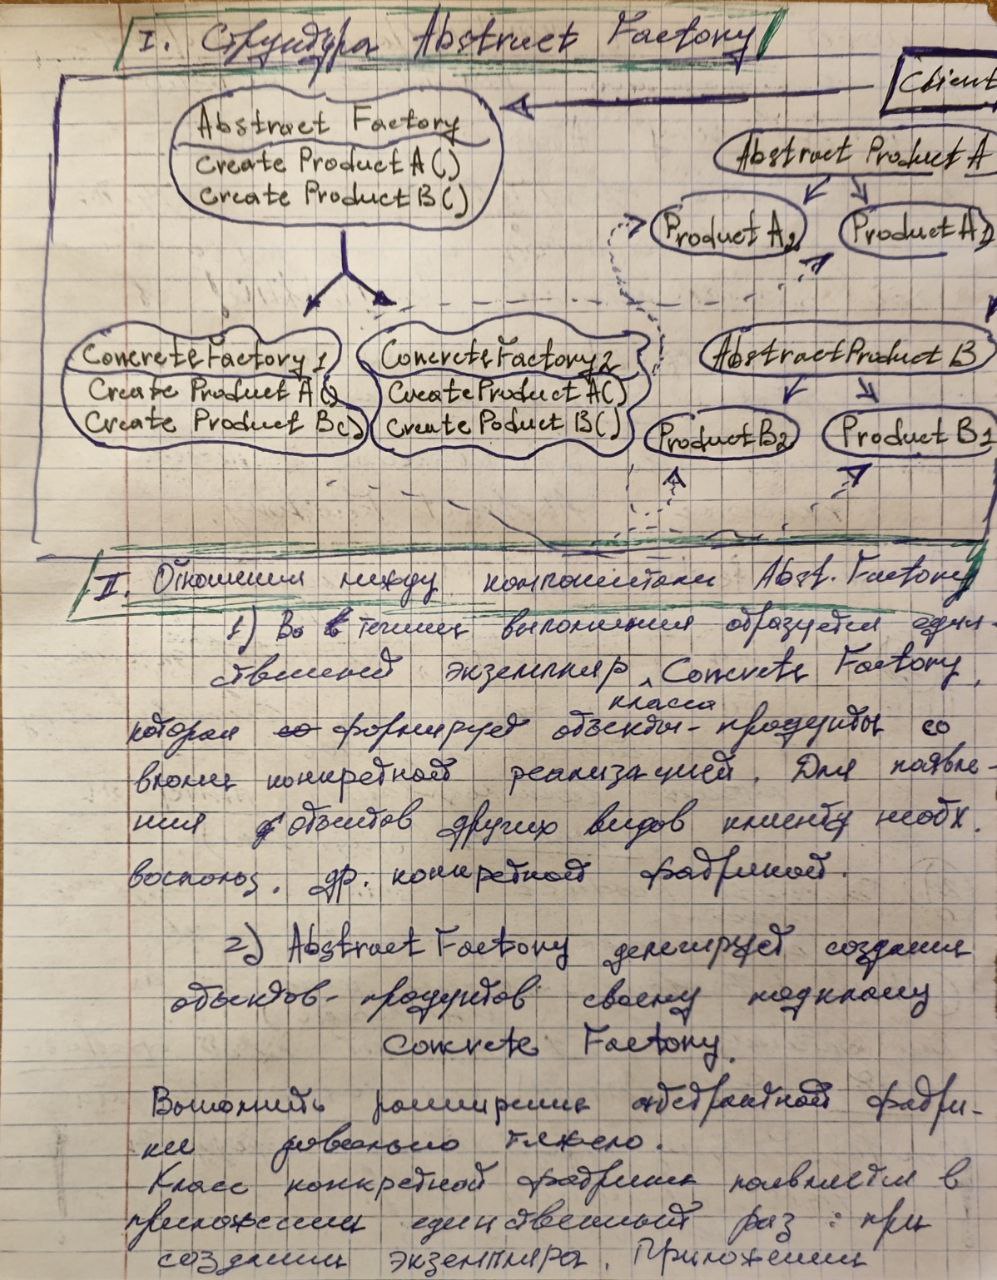 I. Структура Abstract Factory
Client
Abstract Factory
Create Product A()
Create Product B()
Abstract Product A
Product A2
Product A1
ConcreteFactory 1
Create Product A()
Create Product B()
ConcreteFactory 2
CreateProduct A()
Create Poduct B()
AbstractProduct B
Product B2
Product B1
II. Отношения между компонентами Abst. Factory
1) Во в течении выполнения образуется един-
ственный экземпляр класса Concrete Factory,
которая формирует объекты-продукты со
вполне конкретной реализацией. Для появле-
ния объектов других видов клиенту необх.
воспольз. др. конкретной фабрикой.
2) Abstract Factory делегирует создание
объектов-продуктов своему подклассу
Concrete Factory.
Выполнить расширение абстрактной фабри-
ки довольно тяжело.
Класс конкретной фабрики появляется в
приложении единственный раз: при
создании экземпляра. Приложении